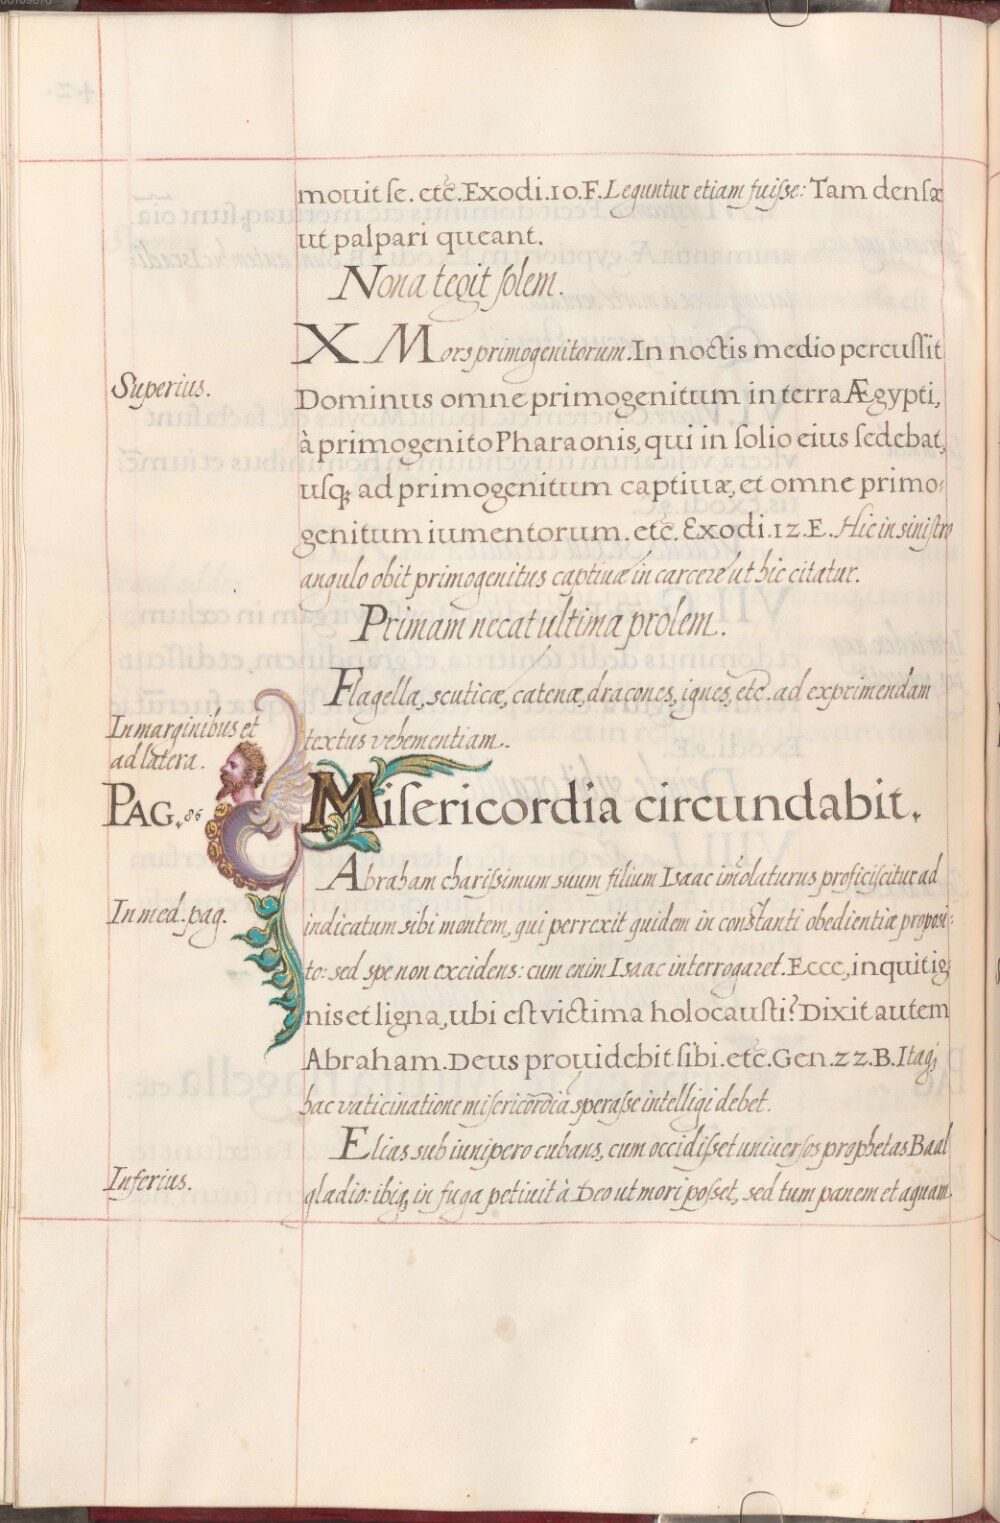 mouit se. etc̃. Exodi. 10. F. Leguntur etiam fuiſse: Tam denſæ
ut palpari queant.
Nona tegit ſolem.
X Mors primogenitorum. In noctis medio percuſſit
Superius.
Dominus omne primogenitum in terra Ægypti,
à primogenito Pharaonis, qui in ſolio eius ſedebat,
uſq; ad primogenitum captiuæ, et omne primo:
genitum iumentorum. etc̃. Exodi. 12. E. Hic in siniſtro
angulo obit primogenitus captiuæ in carcere ut hic citatur.
Primam necat ultima prolem.
Flagella, scuticæ, catenæ, dracones, ignes, etc̃. ad exprimendam
In marginibus et
textus vehementiam.
ad latera.
PAG. 86
Miſericordia circundabit.
Abraham chariſsimum suum filium Isaac im̃olaturus proficiſcitur ad
In med. pag.
indicatum sibi montem, qui perrexit quidem in constanti obedientiæ propoſi:
to: sed spe non excidens: cum enim Isaac interrogaret. Ecce, inquit ig:
nis et ligna, ubi eſt victima holocauſti? Dixit autem
Abraham. Deus prouidebit ſibi. etc̃. Gen. 22. B. Itaq;
hac vaticinatione miſericordia speraſse intelligi debet.
Elias sub iunipero cubans, cum occidiſset uniuerſos prophetas Baal
Inferius.
gladio: ibiq; in fuga petiuit à Deo ut mori poſset, sed tum panem et aquam